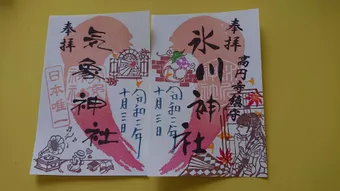 奉拝
気象神社
日本唯一
令和二年
十月三日
奉拝
氷川神社
高円寺鎮守
令和二年
十月三日